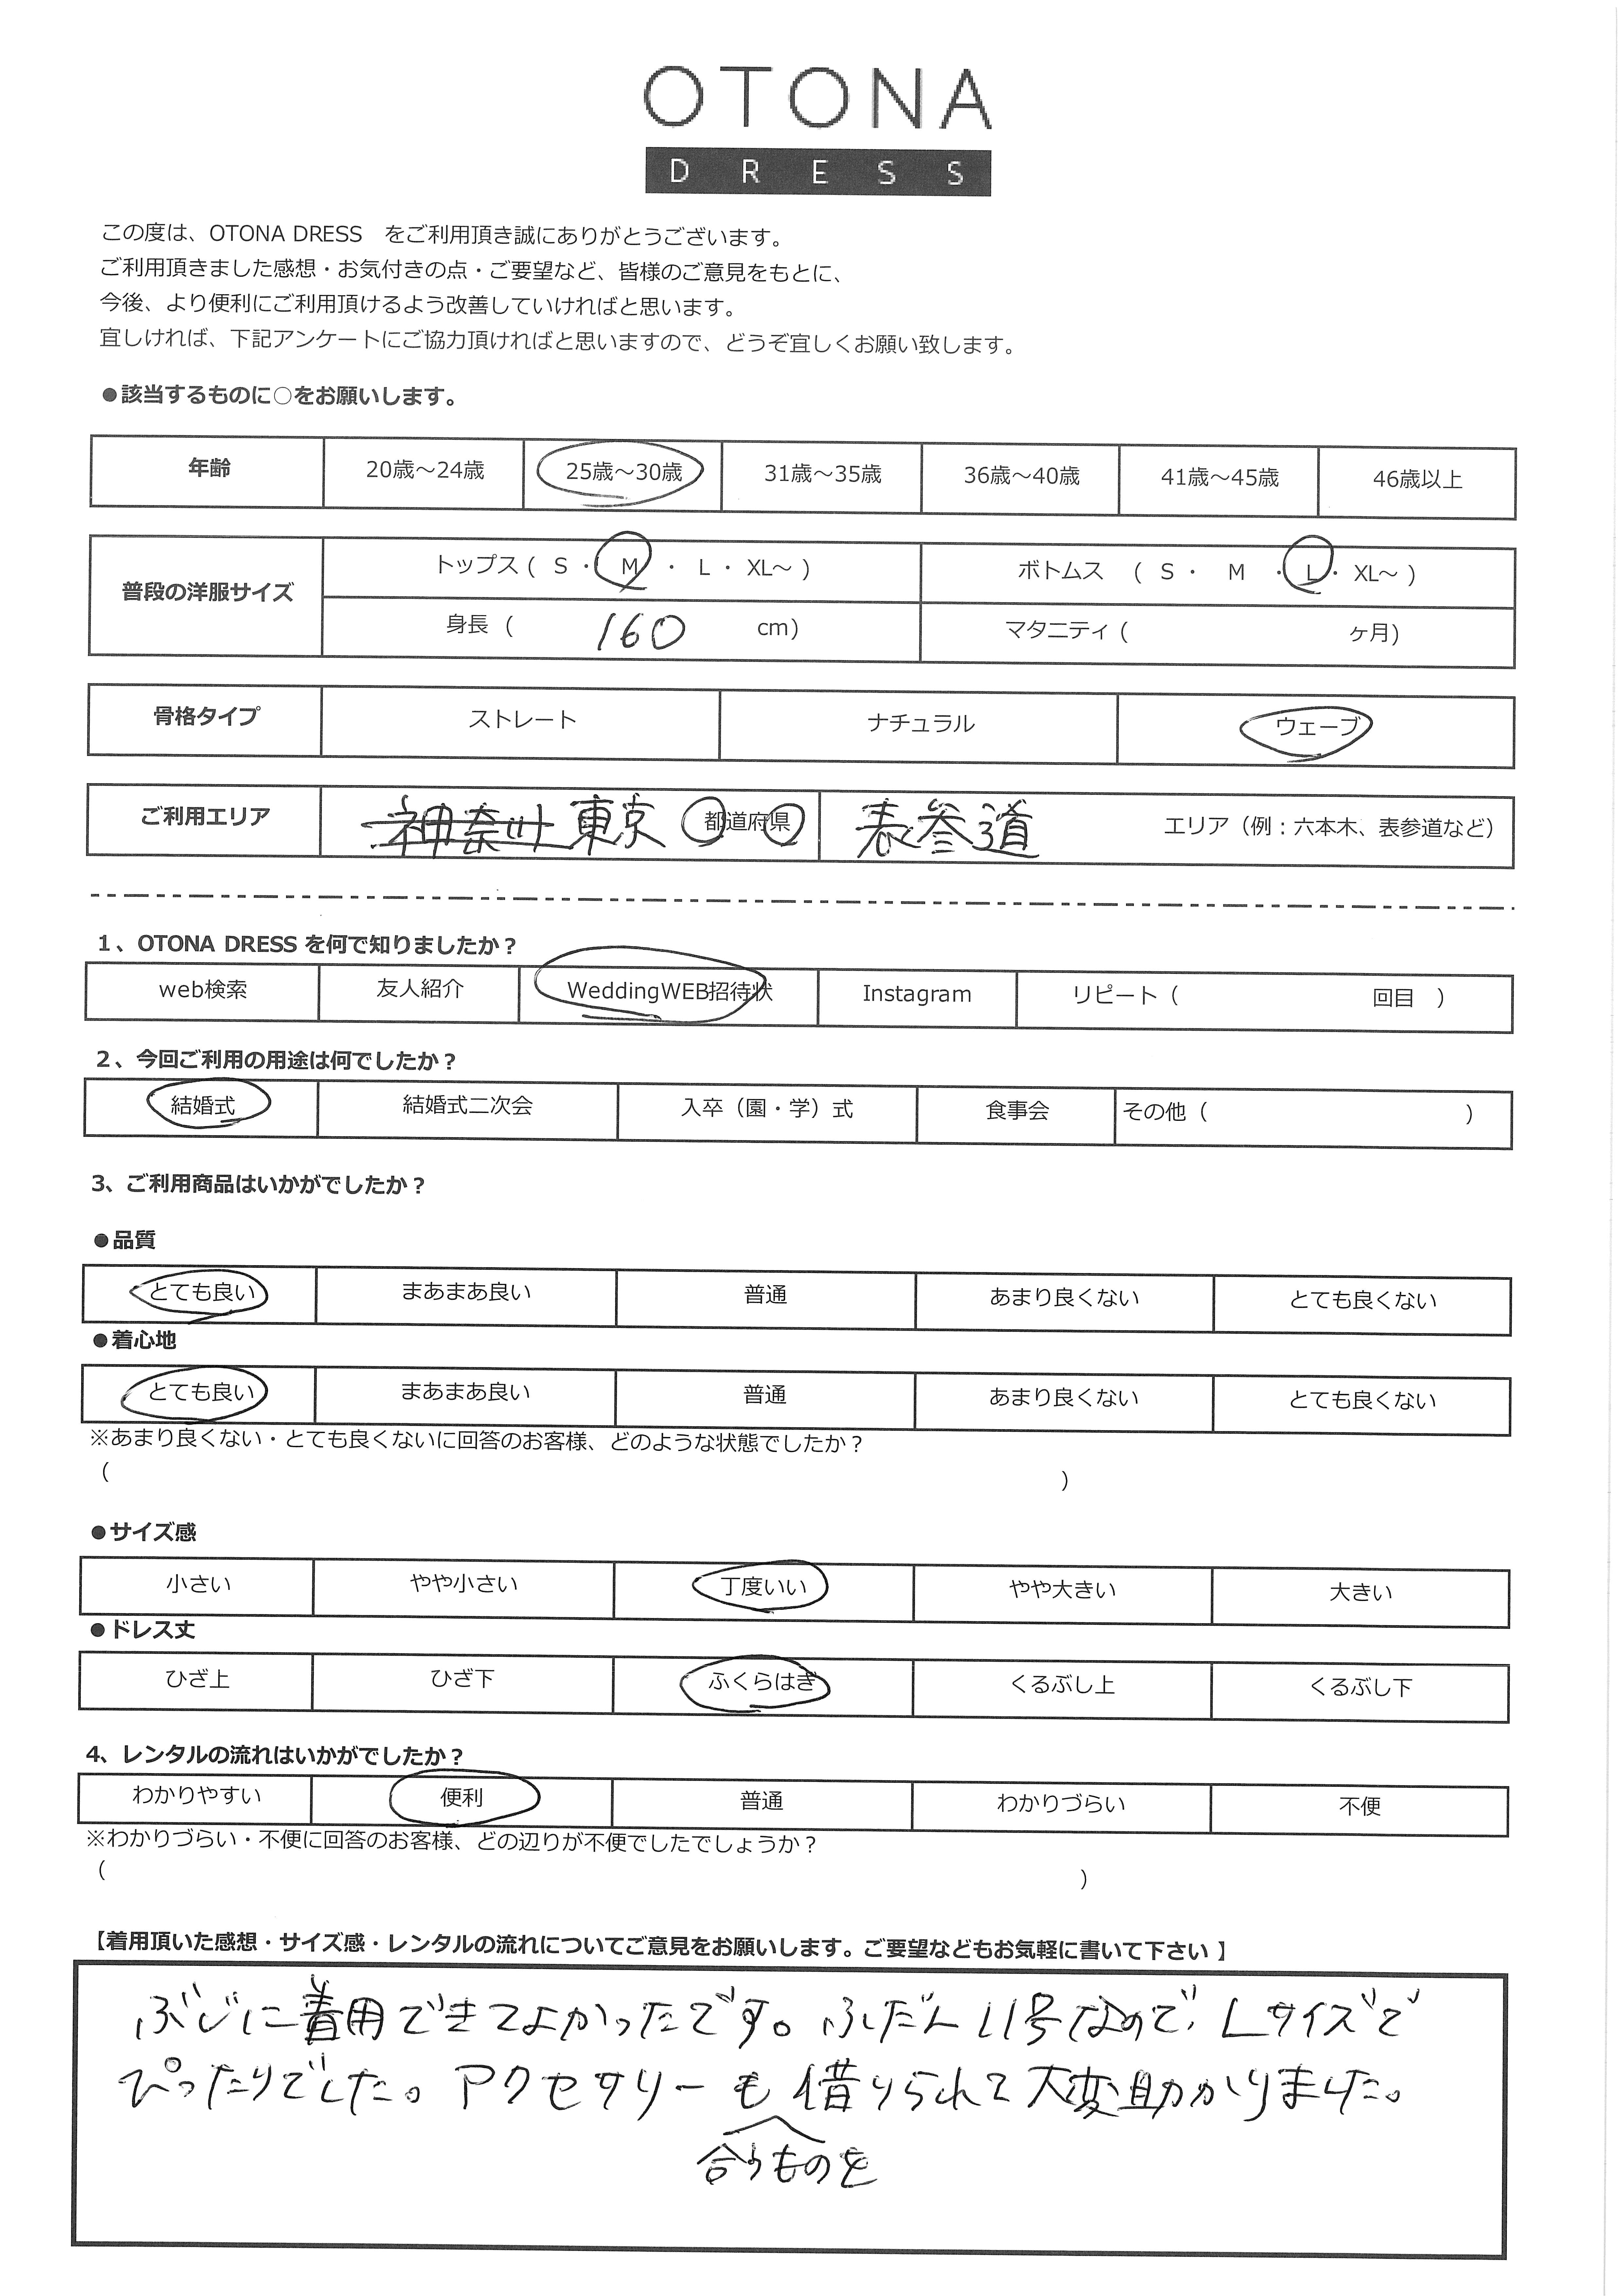 OTONA
DRESS
この度は、OTONA DRESS　をご利用頂き誠にありがとうございます。
ご利用頂きました感想・お気付きの点・ご要望など、皆様のご意見をもとに、
今後、より便利にご利用頂けるよう改善していければと思います。
宜しければ、下記アンケートにご協力頂ければと思いますので、どうぞ宜しくお願い致します。
●該当するものに○をお願いします。
年齢 20歳～24歳 25歳～30歳 31歳～35歳 36歳～40歳 41歳～45歳 46歳以上
普段の洋服サイズ トップス ( S ・ M ・ L ・ XL～ ) ボトムス ( S ・ M ・ L ・ XL～ )
身長 ( 160 cm) マタニティ ( ヶ月)
骨格タイプ ストレート ナチュラル ウェーブ
ご利用エリア 神奈川 東京 都道府県 表参道 エリア（例：六本木、表参道など）
1、OTONA DRESS を何で知りましたか？
web検索 友人紹介 WeddingWEB招待状 Instagram リピート（ 回目 ）
2、今回ご利用の用途は何でしたか？
結婚式 結婚式二次会 入卒（園・学）式 食事会 その他（ ）
3、ご利用商品はいかがでしたか？
●品質
とても良い まあまあ良い 普通 あまり良くない とても良くない
●着心地
とても良い まあまあ良い 普通 あまり良くない とても良くない
※あまり良くない・とても良くないに回答のお客様、どのような状態でしたか？
（ ）
●サイズ感
小さい やや小さい 丁度いい やや大きい 大きい
●ドレス丈
ひざ上 ひざ下 ふくらはぎ くるぶし上 くるぶし下
4、レンタルの流れはいかがでしたか？
わかりやすい 便利 普通 わかりづらい 不便
※わかりづらい・不便に回答のお客様、どの辺りが不便でしたでしょうか？
（ ）
【着用頂いた感想・サイズ感・レンタルの流れについてご意見をお願いします。ご要望などもお気軽に書いて下さい 】
ぶじに着用できてよかったです。ふだん11号なので、Lサイズで
ぴったりでした。アクセサリーも借りられて大変助かりました。
合うものを